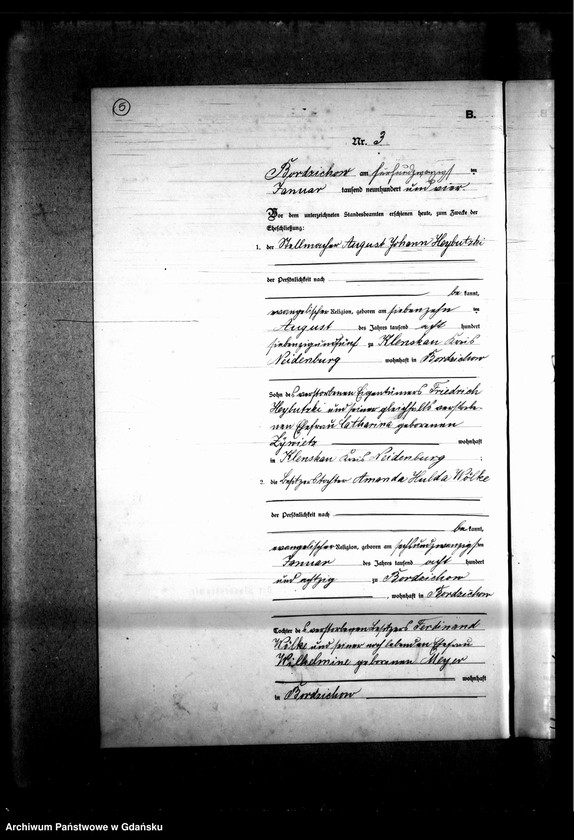 5
B.
Nr. 3
Bordzichow am fünfundzwanzigsten
Januar tausend neunhundert und vier
Vor dem unterzeichneten Standesbeamten erschienen heute, zum Zwecke der
Eheschließung:
1. der Stellmacher August Johann Heybutzki
der Persönlichkeit nach
be kannt,
evangelischer Religion, geboren am siebenzehn ten
August des Jahres tausend acht hundert
siebenzigundfünf zu Klenskau Kreis
Neidenburg wohnhaft in Bordzichow
Sohn des verstorbenen Eigentümers Friedrich
Heybutzki und seiner gleichfalls verstorbe-
nen Ehefrau Catharina geborenen
Zywietz wohnhaft
in Klenskau Kreis Neidenburg ;
2. die Besitzer Tochter Amanda Hulda Wölke
der Persönlichkeit nach
be kannt,
evangelischer Religion, geboren am sechsundzwanzigsten
Januar des Jahres tausend acht hundert
und achtzig zu Bordzichow
, wohnhaft in Bordzichow
Tochter des verstorbenen Besitzers Ferdinand
Wölke und seiner noch lebenden Ehefrau
Wilhelmine geborenen Meyer
wohnhaft
in Bordzichow
Archiwum Państwowe w Gdańsku